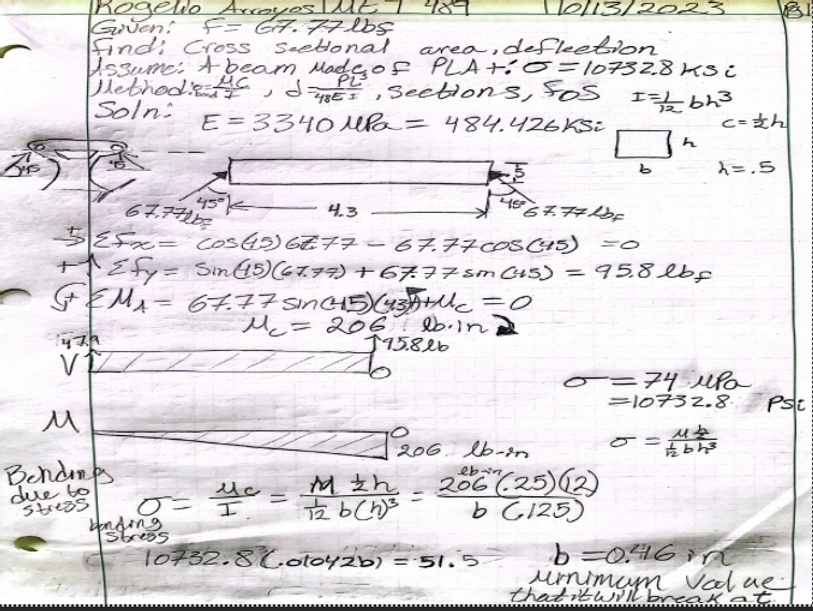 Rogelio Arroyos | MET | 489 | 10/13/2023
Given: F = 67.77 lbf
find: Cross sectional area, deflection
Assume: A beam Made of PLA+: σ = 10732.8 Ksi
Method: σ bend = MC/I , d = PL³/48EI , sections, FOS I = 1/12 bh³
Soln: c = ½h
E = 3340 MPa = 484.426 Ksi
h
b
h = .5
45 45
.5
67.77 lbf 45° 4.3 45° 67.77 lbf
ΣFx = cos(45) 67.77 - 67.77 cos(45) = 0
+↑ ΣFy = Sin(45)(67.77) + 67.77 sin(45) = 95.8 lbf
+ ΣMA = 67.77 Sin(45)(4.3)+Mc = 0
Mc = 206 lb·in
47.9 95.8 lb
V 0
σ = 74 MPa
= 10732.8 Psi
M 0
206 lb-in
σ = M ½h / 1/12 bh³
Bending due to stress
σ bending stress = Mc/I = M ½h / 1/12 b(h)³ = 206 lb-in (.25)(12) / b (.125)
10732.8 (.01042b) = 51.5 b = 0.46 in
Minimum Value
that it will break at